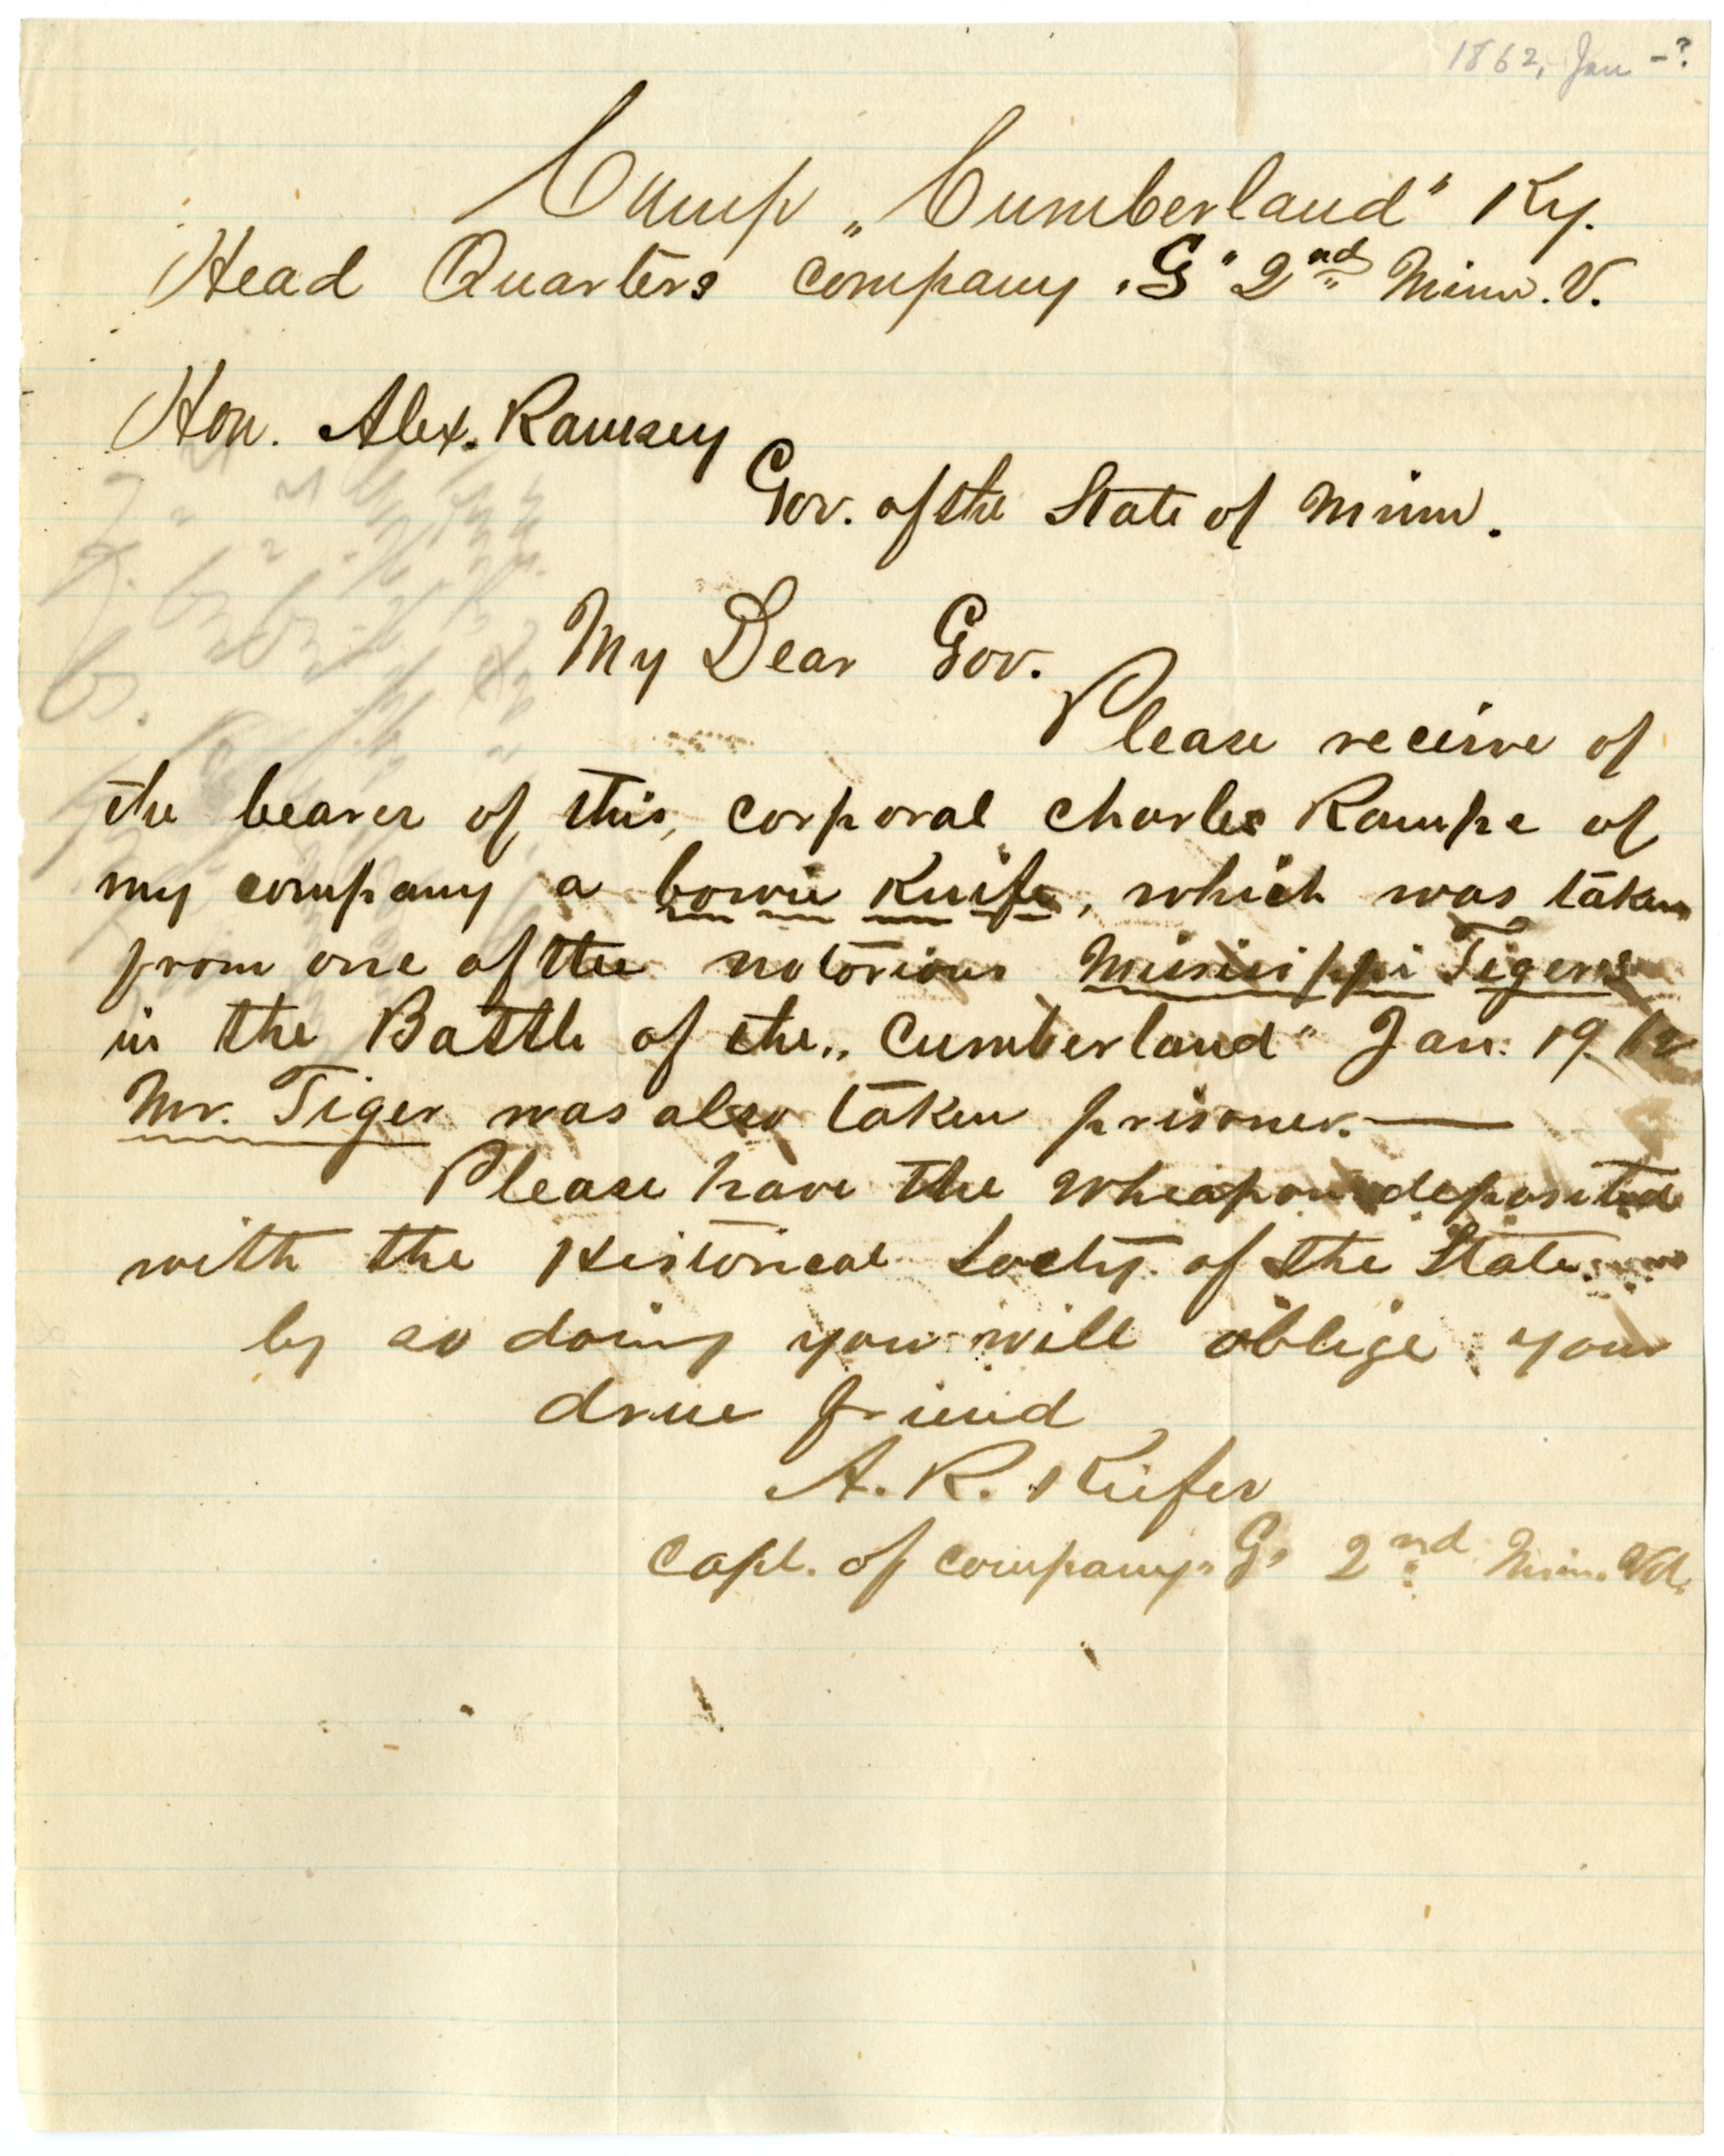 1862, Jan -?
Camp „Cumberland" Ky.
Head Quarters company „G" 2nd Minn. V.
Hon. Alex. Ramsey
Gov. of the State of Minn.
My Dear Gov.
Please receive of
the bearer of this, corporal Charles Rampe of
my company a bowie Knife, which was taken
from one of the notorious Missisippi Tigers
in the Battle of the „Cumberland" Jan. 19. 62
Mr. Tiger was also taken prisoner. —
Please have the wheapon deposited
with the Historical Socty. of the State.
by so doing you will oblige your
drue friend
A. R. Kiefer
Capt. of company „G" 2nd Minn. Vol.